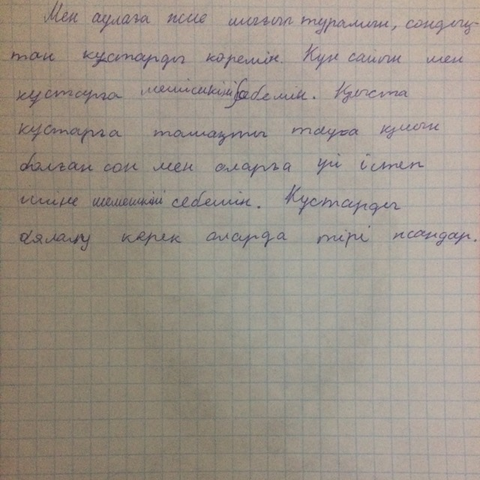 Мен аулаға жие шығып тұрамын, сондық-
тан құстарды көремін. Күн сайын мен
құстарға шемішкіні себемін. Қыста
құстарға тамақты табуа қиын
болған сон мен оларға үй істеп
ішіне шемешкіні себемін. Құстарды
аялау керек оларда тірі жандар.